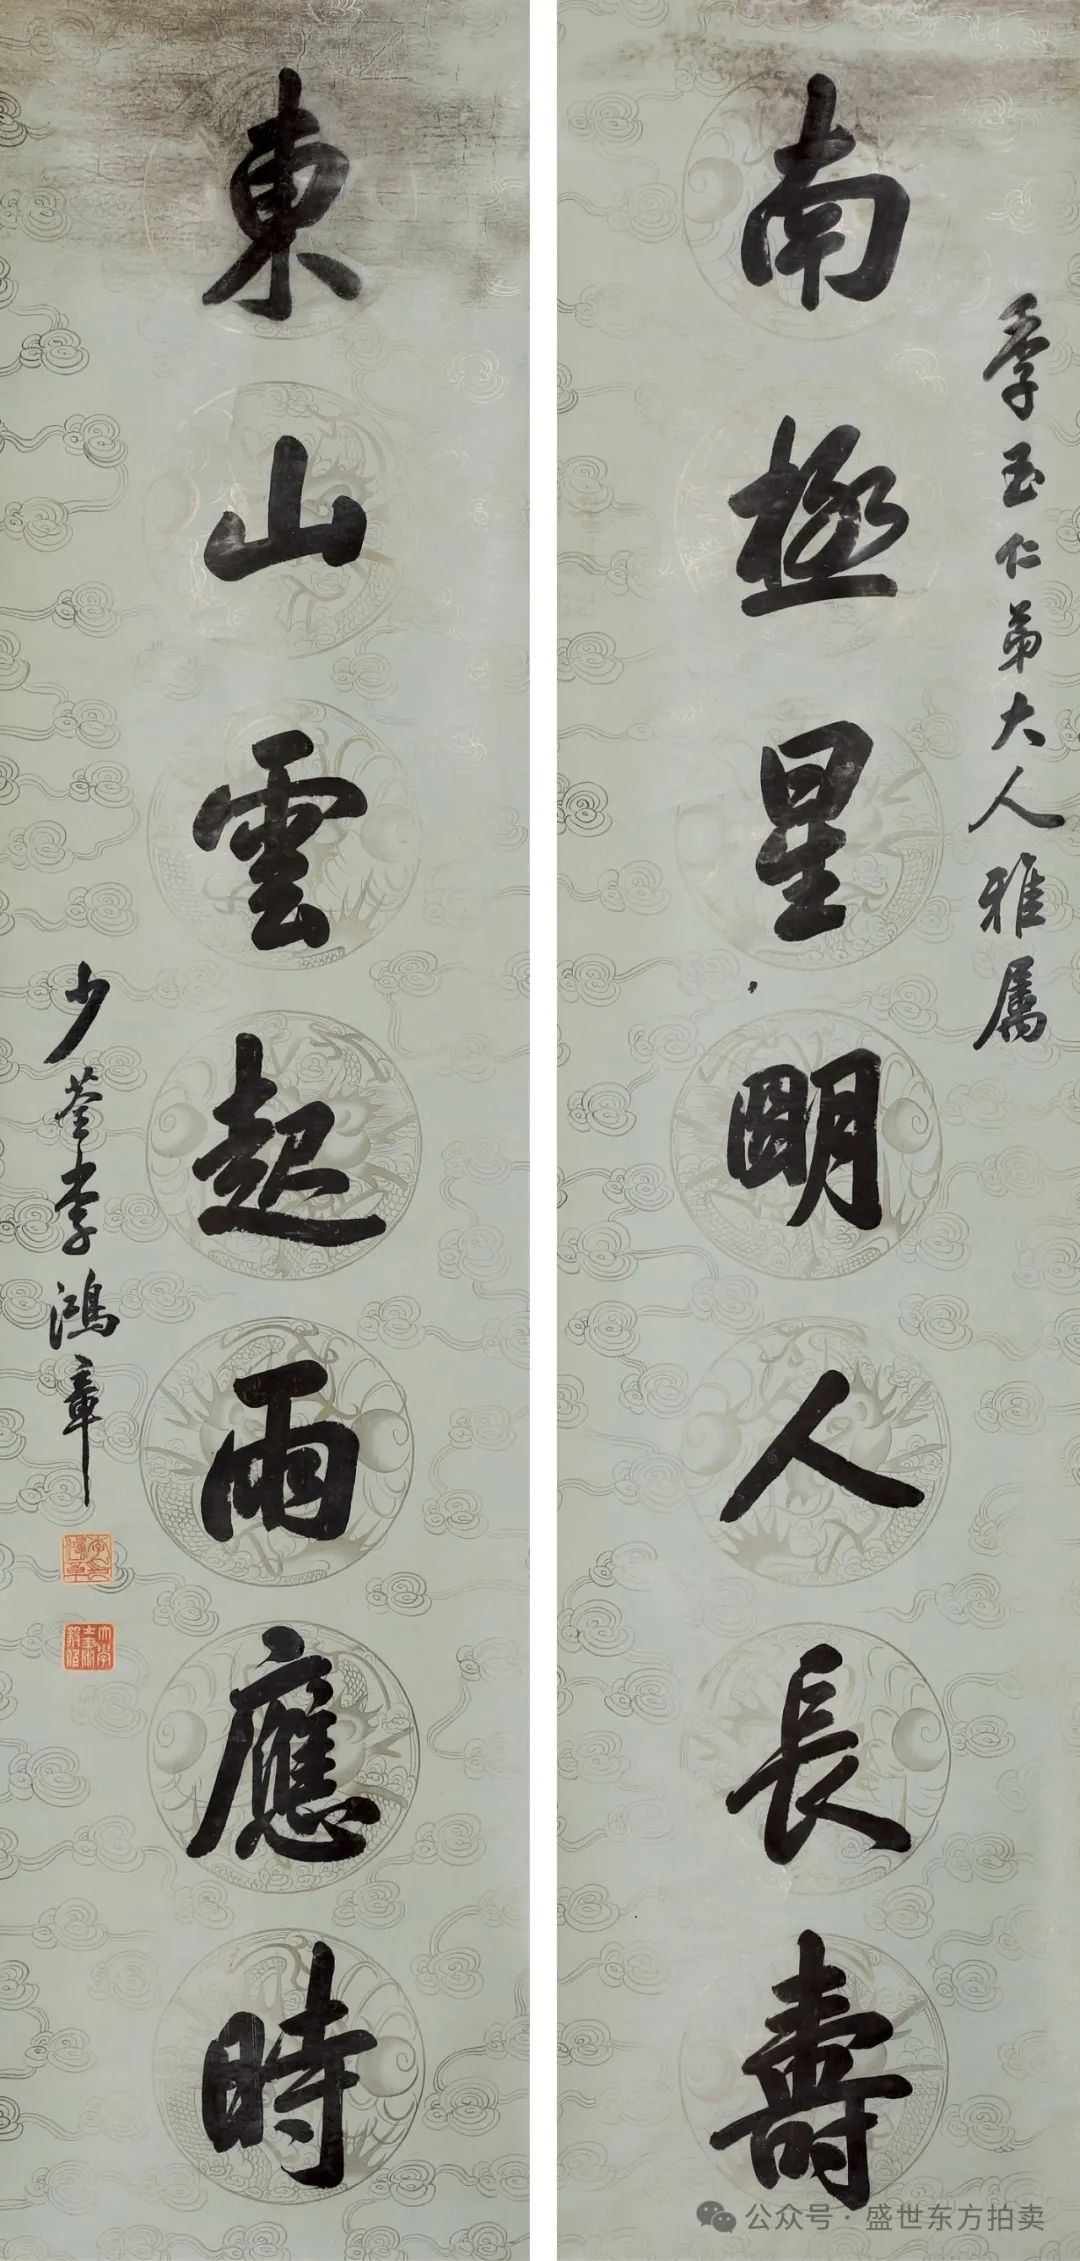 季玉仁弟大人雅属
南極星朙人長壽
東山雲起雨應時
少荃李鴻章
大學士肅毅伯
公众号·盛世东方拍卖